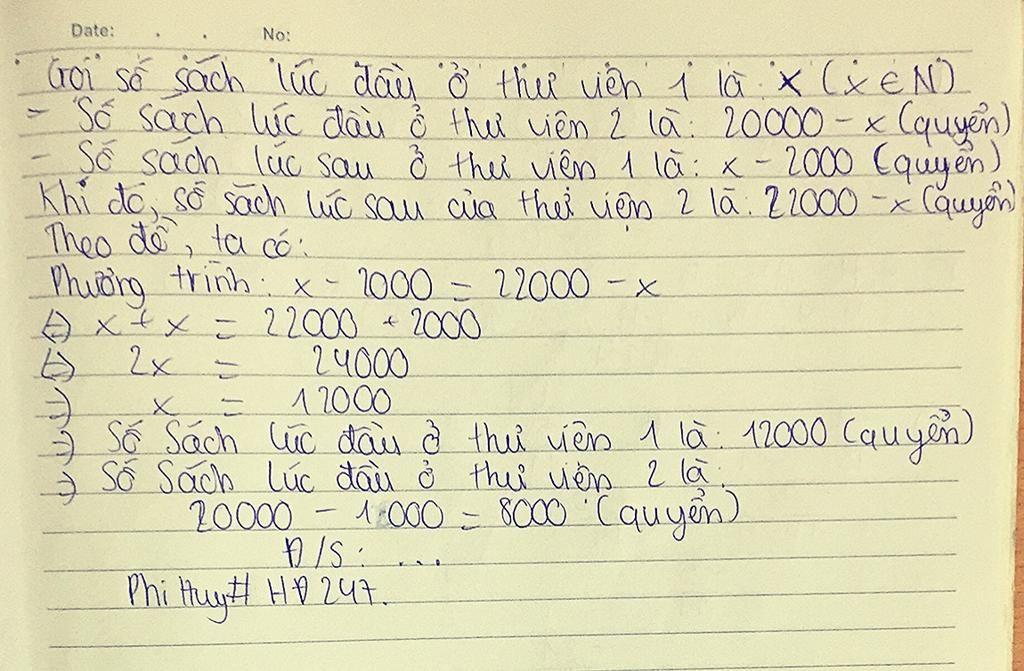 Date: . . No:
Gọi số sách lúc đầu ở thư viện 1 là: x (x ∈ N)
- Số sách lúc đầu ở thư viện 2 là: 20000 - x (quyển)
- Số sách lúc sau ở thư viện 1 là: x - 2000 (quyển)
Khi đó, số sách lúc sau của thư viện 2 là: 22000 - x (quyển)
Theo đề, ta có:
Phương trình: x - 2000 = 22000 - x
⇔ x + x = 22000 + 2000
⇔ 2x = 24000
⇒ x = 12000
⇒ Số Sách lúc đầu ở thư viện 1 là: 12000 (quyển)
⇒ Số Sách lúc đầu ở thư viện 2 là:
20000 - 1 000 = 8000 (quyển)
Đ/S: ...
Phi Huy# HĐ 247.